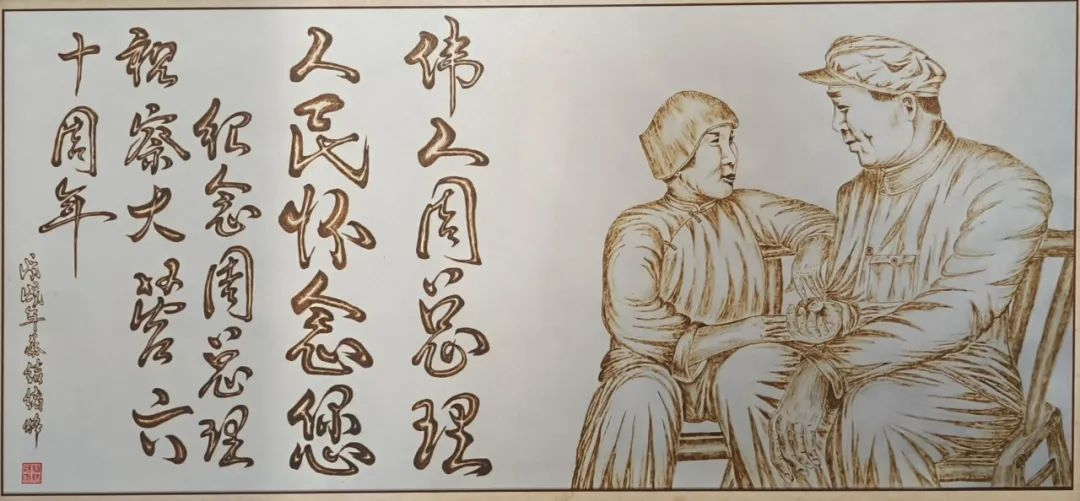 伟人周总理
人民怀念您
纪念周总理
视察大营六
十周年
戊戌年春